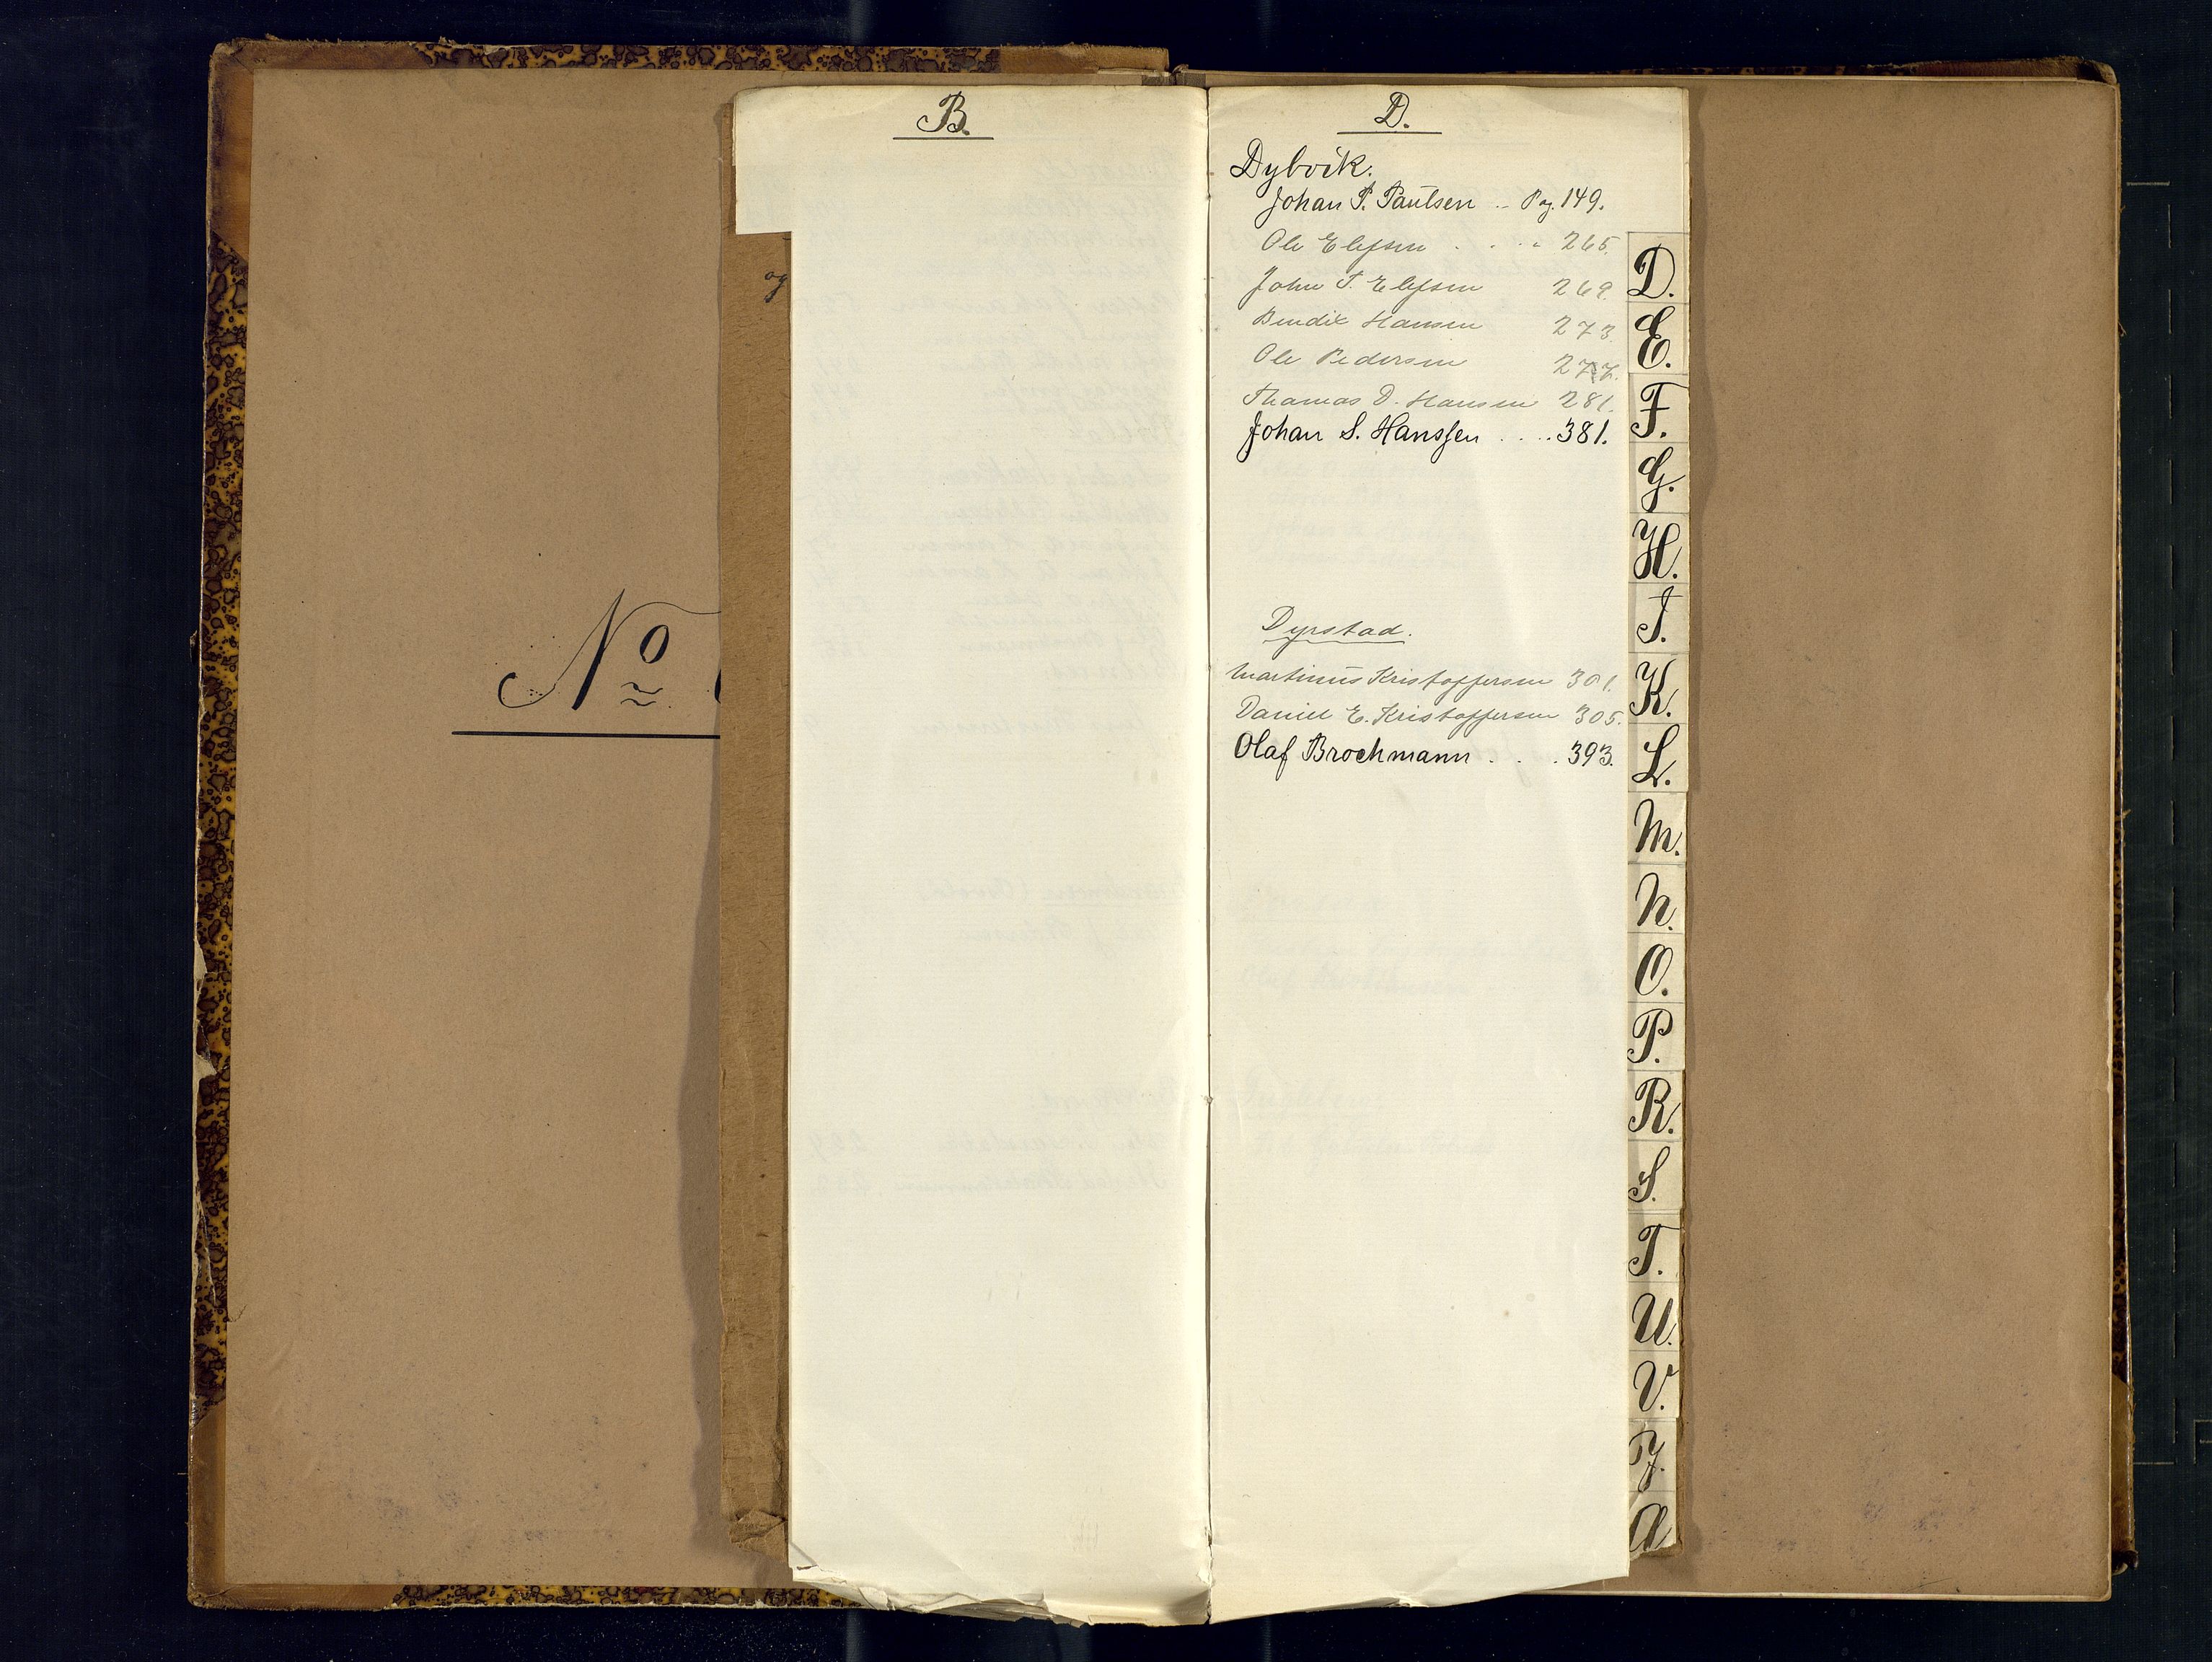 B.
og
No
D.
Dybvik.
Johan P. Paulsen .. Pag. 149.
Ole Elefsen . . . . 265.
John T. Elefsen 269.
Bendix Hansen 273.
Ole Pedersen 277.
Thomas D. Hansen 281.
Johan S. Hanssen .... 381.
Dyrstad.
Martinus Kristoffersen 301.
Daniel E. Kristoffersen 305.
Olaf Brochmann . . . 393.
D.
E.
F.
G.
H.
I.
K.
L.
M.
N.
O.
P.
R.
S.
T.
U.
V.